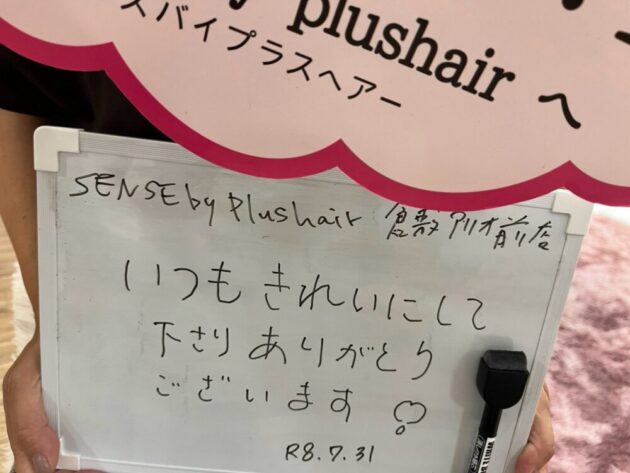 by plushair へ
スバイプラスヘアー
SENSE by Plushair 倉敷アリオ前店
いつも きれいにして
下さり ありがとう
ございます♡
R8.7.31